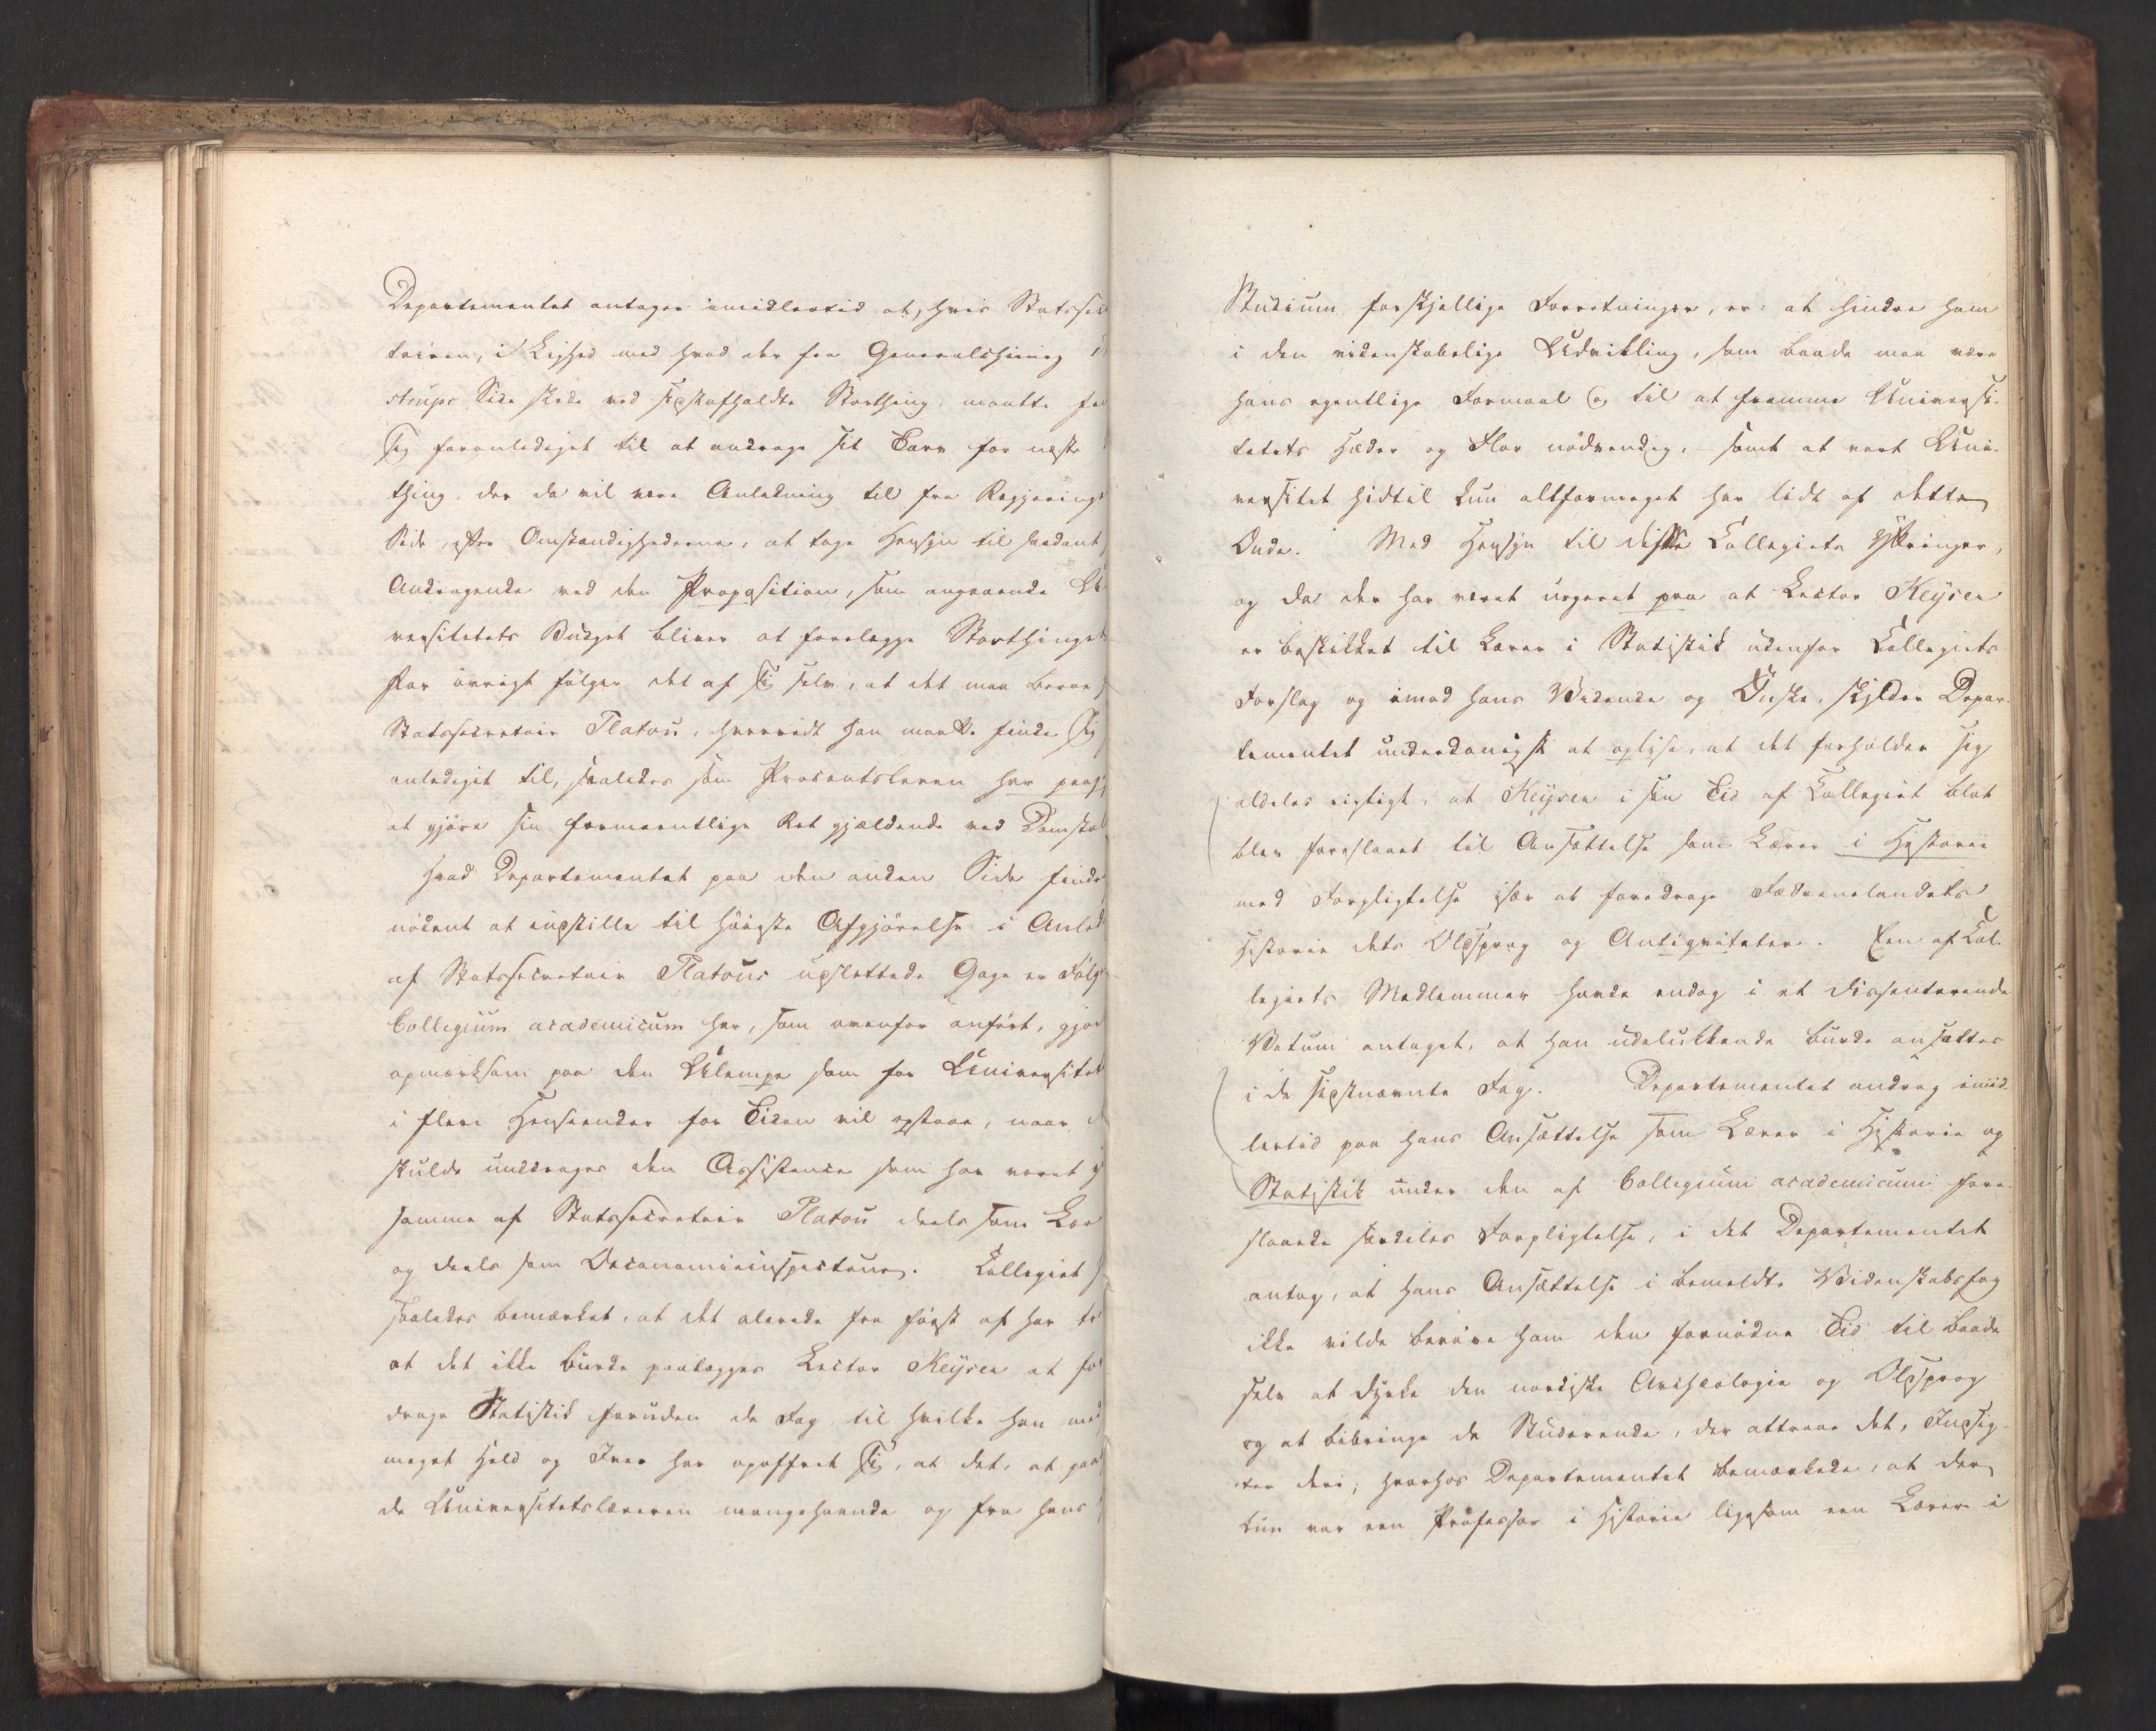 Departementet antager imidlertid at, hvis Statssec
tairen, i Lighed med hvad der fra Generalchirurg
strups Side skede ved sidstafholdte Storthing, maatte fin
sig foranlediget til at andrage sit Tarv for næste
thing, der da vil være Anledning til fra Regjerings
Side, efter Omstændighederne, at tage Hensyn til saadant
Andragende ved den Proposition, som angaaende Uni
versitetets Budget bliver at forelægge Storthinget
For øvrigt følger det af sig selv, at det maa beroe
Statssecretair Platou, hvorvidt han maatte finde sig
anlediget til, saaledes som Procentskaren har paa
at gjøre sin formeentlige Ret gjældende ved Domstol
Hvad Departementet paa den anden Side finder
nødent at indstille til høieste Afgjørelse i Anled
af Statssecretair Platous opslettede Gage er Følg
Collegium academicum har, som ovenfor anført, gjor
opmærksom paa den Ulempe som for Universitet
i flere Henseender for Tiden vil opstaae, naar d
skulde unddrages den Assistence som har været y
samme af Statssecretair Platou deels som Lær
og deels som Oeconomieinspecteur. Collegiet
saaledes bemærket, at det allerede fra først af har
at det ikke burde paalægges Lector Keyser at fo
drage Statistik foruden de Fag til hvilke han med
meget Held og Iver har opoffret sig, at det, at paa
de Universitetslæreren mangehaande og fra hans
Studium forskjellige Forretninger, er: at hindre ham
i den videnskabelige Udvikling, som baade maa være
hans egentlige Formaal og til at fremme Universi-
tetets Hæder og Flor nødvendig, samt at vort Uni-
versitet hidtil kun altformeget har lidt af dette
Onde. Med Hensyn til disse Collegiets Yttringer,
og da der har været urgeret paa at Lector Keyser
er beskikket til Lærer i Statistik udenfor Collegiets
Forslag og imod hans Vidende og Ønske, skylder Depar-
tementet underdanigst at oplyse, at det forholder sig
aldeles rigtigt, at Keyser i sin Tid af Collegiet blot
blev foreslaaet til Ansættelse som Lærer i Historie
med Forpligtelse især at foredrage Fædrenelandets
Historie dets Oldsprog og Antiqviteter. Een af Col-
legiets Medlemmer havde endog i et dissenterende
Votum antaget, at han udelukkende burde ansættes
i de sidstnævnte Fag. Departementet androg imid-
lertid paa hans Ansættelse som Lærer i Historie og
Statistik under den af Collegium academicum fore-
slaaede særdeles Forpligtelse, i det Departementet
antog, at hans Ansættelse i bemeldte Videnskabsfag
ikke vilde berøve ham den fornødne Tid til baade
selv at dyrke den nordiske Archæologie og Oldsprog
og at bibringe de Studerende, der attraae det, Indsig-
ter deri; hvorhos Departementet bemærkede, at der
kun var een Professor i Historie ligesom een Lærer i